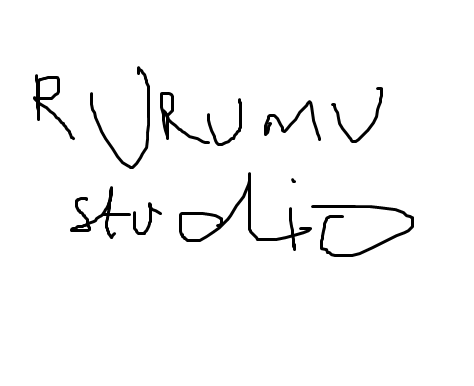 RURUMU
studio